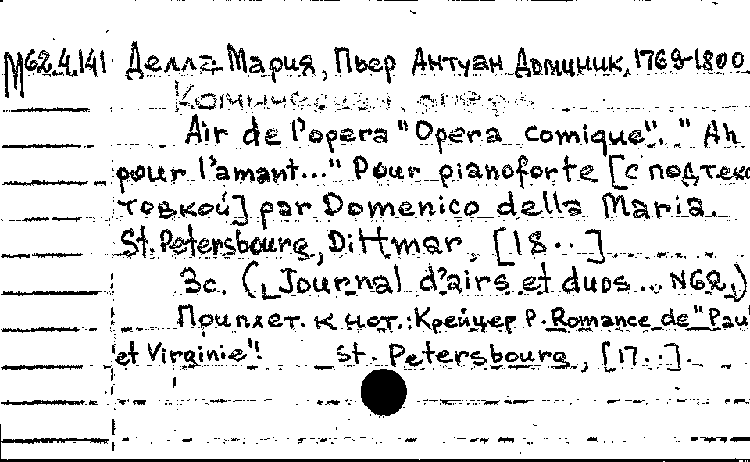 М62.4.141 Делла-Мария, Пьер Антуан Доминик, 1769-1800
Комическая опера
Air de l'opera "Opera comique". "Ah
pour l'amant..." Pour pianoforte [с подтекс
товкой] par Domenico della Maria.
St. Petersbourg, Dittmar, [18..]
3с. (Journal d'airs et duos... N62.)
Приплет. к нот.: Крейцер Р. Romance de "Paul
et Virginie". St. Petersbourg, [17..].